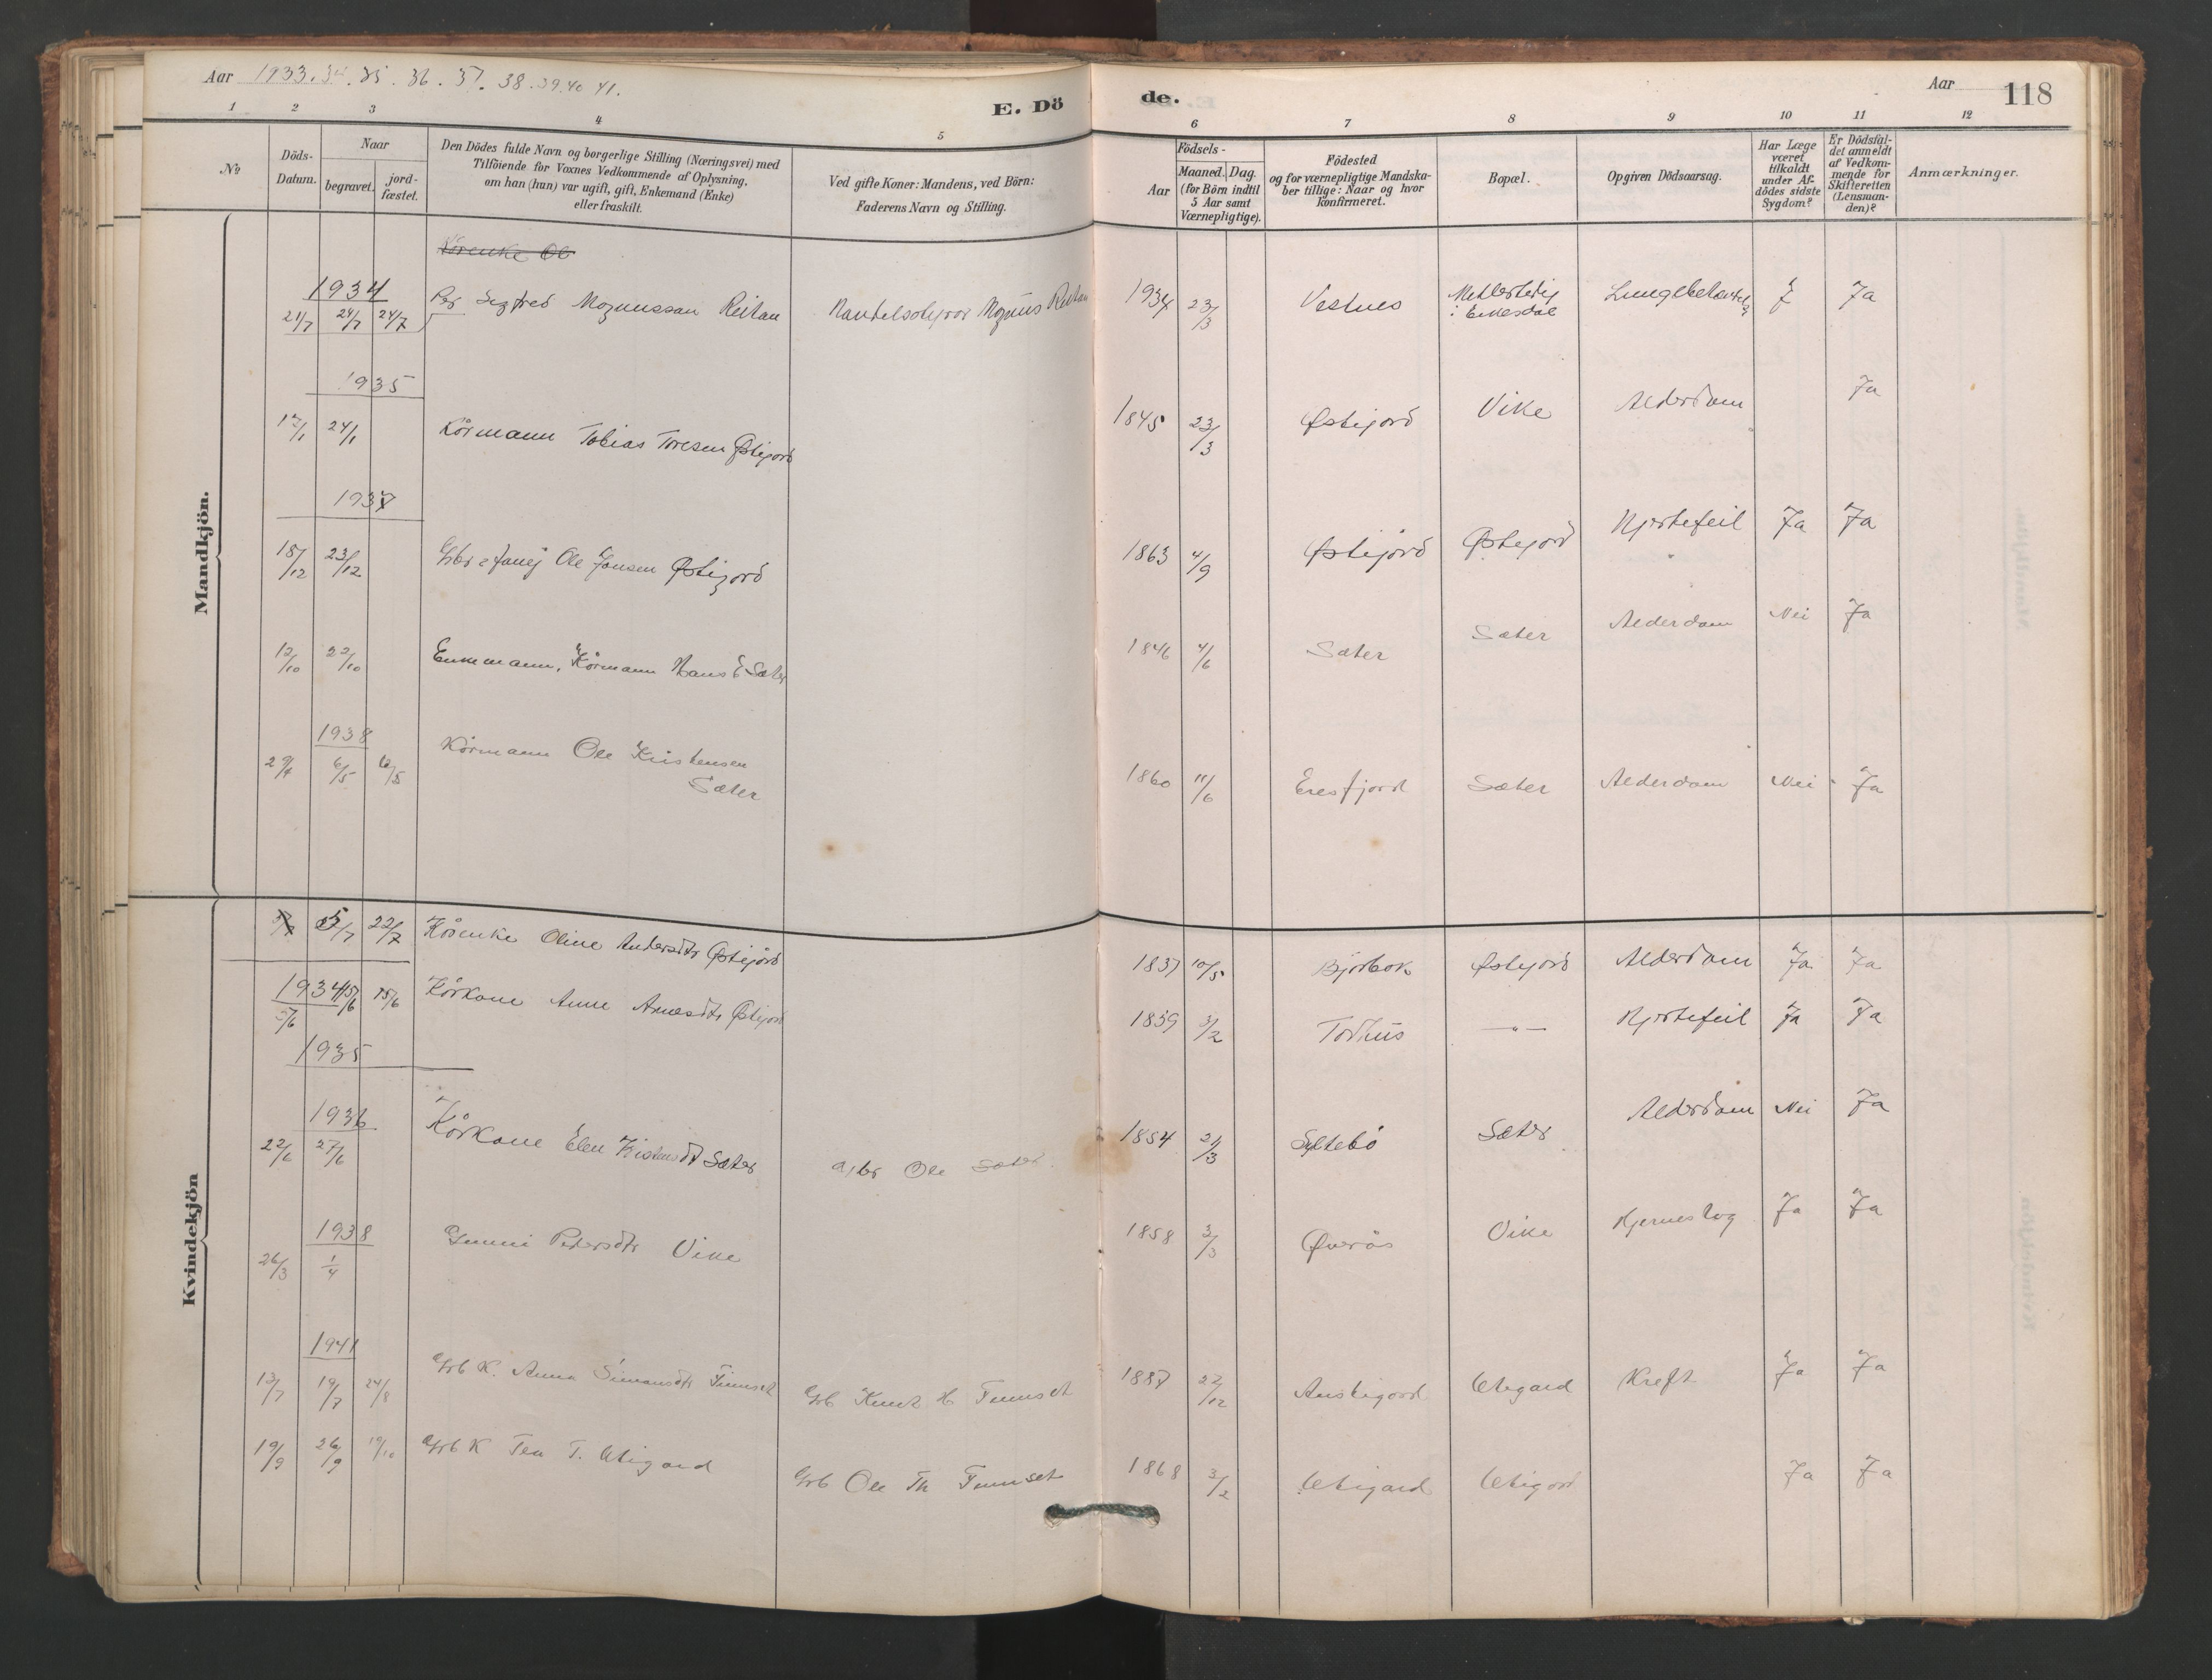 Aar 1933. 34. 35. 36. 37. 38. 39. 40 41.
E. Dö
de.
Aar
118
1 2 3 4 5 6 7 8 9 10 11 12
No
Döds-
Datum.
Naar
begravet.
jord-
fæstet.
Den Dödes fulde Navn og borgerlige Stilling (Næringsvei) med
Tilföiende for Voxnes Vedkommende af Oplysning,
om han (hun) var ugift, gift, Enkemand (Enke)
eller fraskilt.
Ved gifte Koner: Mandens, ved Börn:
Faderens Navn og Stilling.
Födsels-
Aar
Maaned. Dag.
(for Börn indtil
5 Aar samt
Værnepligtige).
Födested
og for værnepligtige Mandska-
ber tillige: Naar og hvor
konfirmeret.
Bopæl.
Opgiven Dödsaarsag.
Har Læge
været
tilkaldt
under Af-
dödes sidste
Sygdom?
Er Dödsfal-
det anmeldt
af Vedkom-
mende for
Skifteretten
(Lensman-
den)?
Anmærkninger.
Mandkjön.
Kårenke Ol
1934
21/7 24/7 24/7 Per Sigfred Magnussan Reitan Handelsstyrar Magnus Reitan 1934 23/3 Vestnes Midlertidig
i Eikesdal Lungebetændelse J Ja
1935
17/1 24/1 Kårmann Tobias Toresen Østigård 1845 23/3 Østigård Vike Alderdom Ja
1937
18/12 23/12 Gbr Ole Jonsen Østigård 1863 4/9 Østigård Østigård Hjertefeil Ja Ja
12/10 22/10 Enkmann, Kårmann Hans E Sæter 1846 4/6 Sæter Sæter Alderdom Nei Ja
1938
29/4 6/5 6/5 Kårmann Ole Kristensen
Sæter 1860 11/6 Eresfjord Sæter Alderdom Nei Ja
Kvindekjön
5/7 22/7 Kårenke Oline Andersdtr Østigård 1837 10/5 Bjørbok Østigård Alderdom Ja Ja
1934 15/6 15/6 Kårkone Anne Arnesdtr Østigård 1859 3/2 Torhus —"— Hjertefeil Ja Ja
5/6
1935
1936
22/6 27/6 Kårkone Elen Kristensdt Sæter Gbr Ole Sæter 1854 21/3 Syltebö Sæter Alderdom Nei Ja
1938
26/3 1/4 Gunni Pedersdtr Vike 1858 2/3 Øverås Vike Hjerneslag Ja Ja
1941
13/7 19/7 24/8 Grb K. Anna Simonsdtr Finnset Grb Knut H Finnset 1887 22/12 Austigard Utigard Kreft Ja Ja
19/9 26/9 19/10 Grb K Tea T. Utigard Grb Ole Th Finnset 1868 3/2 Utigard Utigard Ja Ja